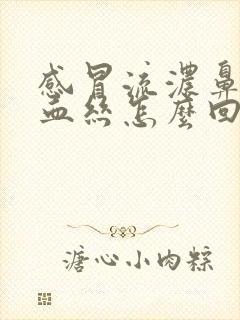 感冒流濃鼻
血絲怎麼回
溏心小肉粽